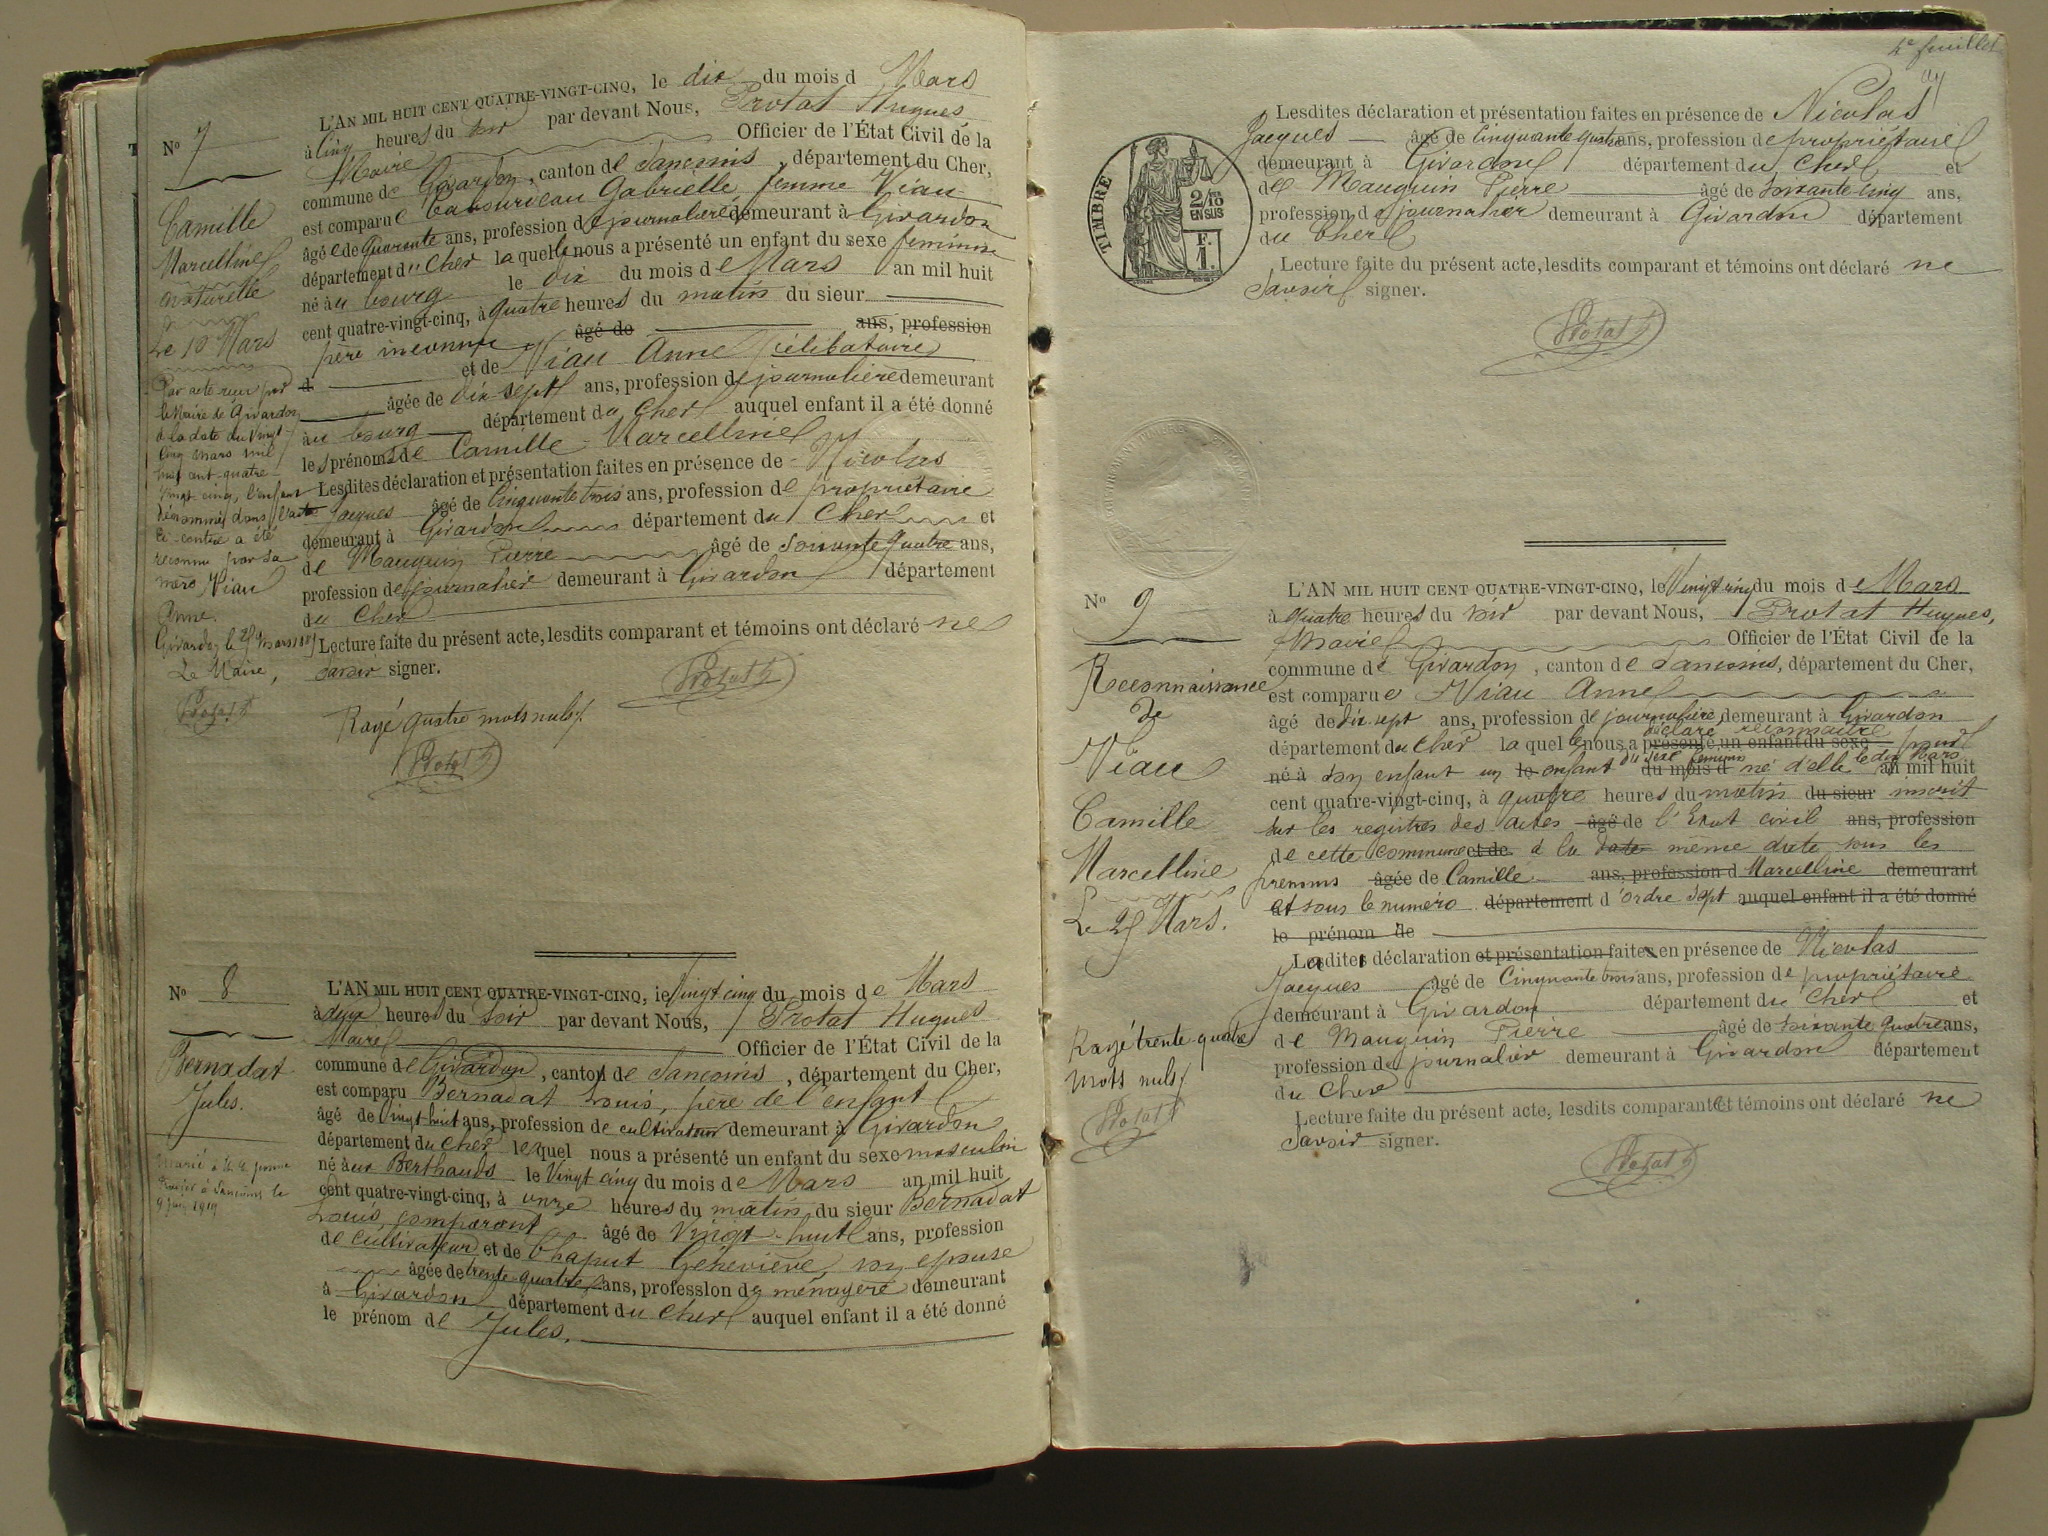 N° 7
Camille
Marcelline
naturelle
Le 10 Mars
Par acte reçu par
le Maire de Givardon
à la date du Vingt-
cinq mars mil
huit cent quatre-
vingt cinq, l'enfant
dénommé dans l'acte
ci-contre a été
reconnu par sa
mère Viau
Anne.
Givardon, le 25 Mars 1885
Le Maire,
Protat h
L'AN MIL HUIT CENT QUATRE-VINGT-CINQ, le dix du mois d Mars
à Cinq heures du soir par devant Nous, Protat Hugues
Maire Officier de l'État Civil de la
commune de Givardon, canton de Sancoins, département du Cher,
est comparue Cabourdeau Gabrielle femme Viau
âgée de quarante ans, profession de journalière demeurant à Givardon
département du Cher laquelle nous a présenté un enfant du sexe féminin
né au bourg le dix du mois de Mars an mil huit
cent quatre-vingt-cinq, à quatre heures du matin du sieur
père inconnu âgé de ans, profession
d et de Viau Anne célibataire
âgée de dix sept ans, profession de journalière demeurant
au bourg département du Cher auquel enfant il a été donné
les prénoms de Camille - Marcelline
Lesdites déclaration et présentation faites en présence de Nicolas
Jacques âgé de Cinquante trois ans, profession de propriétaire
demeurant à Givardon département du Cher et
de Mauguin Pierre âgé de soixante quatre ans,
profession de journalier demeurant à Givardon département
du Cher
Lecture faite du présent acte, lesdits comparant et témoins ont déclaré ne
savoir signer.
Protat h
Rayé quatre mots nuls
Protat h
N° 8
Bernadat
Jules.
Marié à
à Sancoins le
9 juin 1919
L'AN MIL HUIT CENT QUATRE-VINGT-CINQ, le Vingt cinq du mois de Mars
à deux heures du soir par devant Nous, Protat Hugues
Maire Officier de l'État Civil de la
commune de Givardon, canton de Sancoins, département du Cher,
est comparu Bernadat Louis, père de l'enfant
âgé de vingt huit ans, profession de cultivateur demeurant à Givardon
département du Cher lequel nous a présenté un enfant du sexe masculin
né aux Berthauds le Vingt cinq du mois de Mars an mil huit
cent quatre-vingt-cinq, à onze heures du matin du sieur Bernadat
Louis, comparant âgé de Vingt-huit ans, profession
de cultivateur et de Chaput Geneviève son épouse
âgée de trente quatre ans, profession de ménagère demeurant
à Givardon département du Cher auquel enfant il a été donné
le prénom de Jules.
4e feuillet
TIMBRE
2/10
EN SUS
F.
1.
Lesdites déclaration et présentation faites en présence de Nicolas
Jacques âgé de Cinquante quatre ans, profession de propriétaire
demeurant à Givardon département du Cher et
de Mauguin Pierre âgé de soixante cinq ans,
profession de journalier demeurant à Givardon département
du Cher
Lecture faite du présent acte, lesdits comparant et témoins ont déclaré ne
savoir signer.
Protat h
N° 9
Reconnaissance
de
Viau
Camille
Marcelline
Le 25 Mars.
Rayé trente quatre
mots nuls
Protat h
L'AN MIL HUIT CENT QUATRE-VINGT-CINQ, le Vingt cinq du mois de Mars
à quatre heures du soir par devant Nous, Protat Hugues,
Maire Officier de l'État Civil de la
commune de Givardon, canton de Sancoins, département du Cher,
est comparue Viau Anne
âgé de dix sept ans, profession de journalière, demeurant à Givardon
déclaré reconnaître
département du Cher laquelle nous a présenté un enfant du sexe pour
du sexe féminin le dix Mars
né à son enfant un le enfant du mois d né d'elle an mil huit
cent quatre-vingt-cinq, à quatre heures du matin du sieur inscrit
sur les registres des actes âgé de l'État civil ans, profession
de cette commune et de à la date même date sous les
prénoms âgée de Camille ans, profession d Marcelline demeurant
et sous le numéro département d'ordre sept auquel enfant il a été donné
le prénom de
Ladite déclaration et présentation faite en présence de Nicolas
Jacques âgé de Cinquante trois ans, profession de propriétaire
demeurant à Givardon département du Cher et
de Mauguin Pierre âgé de soixante quatre ans,
profession de journalier demeurant à Givardon département
du Cher
Lecture faite du présent acte, lesdits comparant et témoins ont déclaré ne
savoir signer.
Protat h